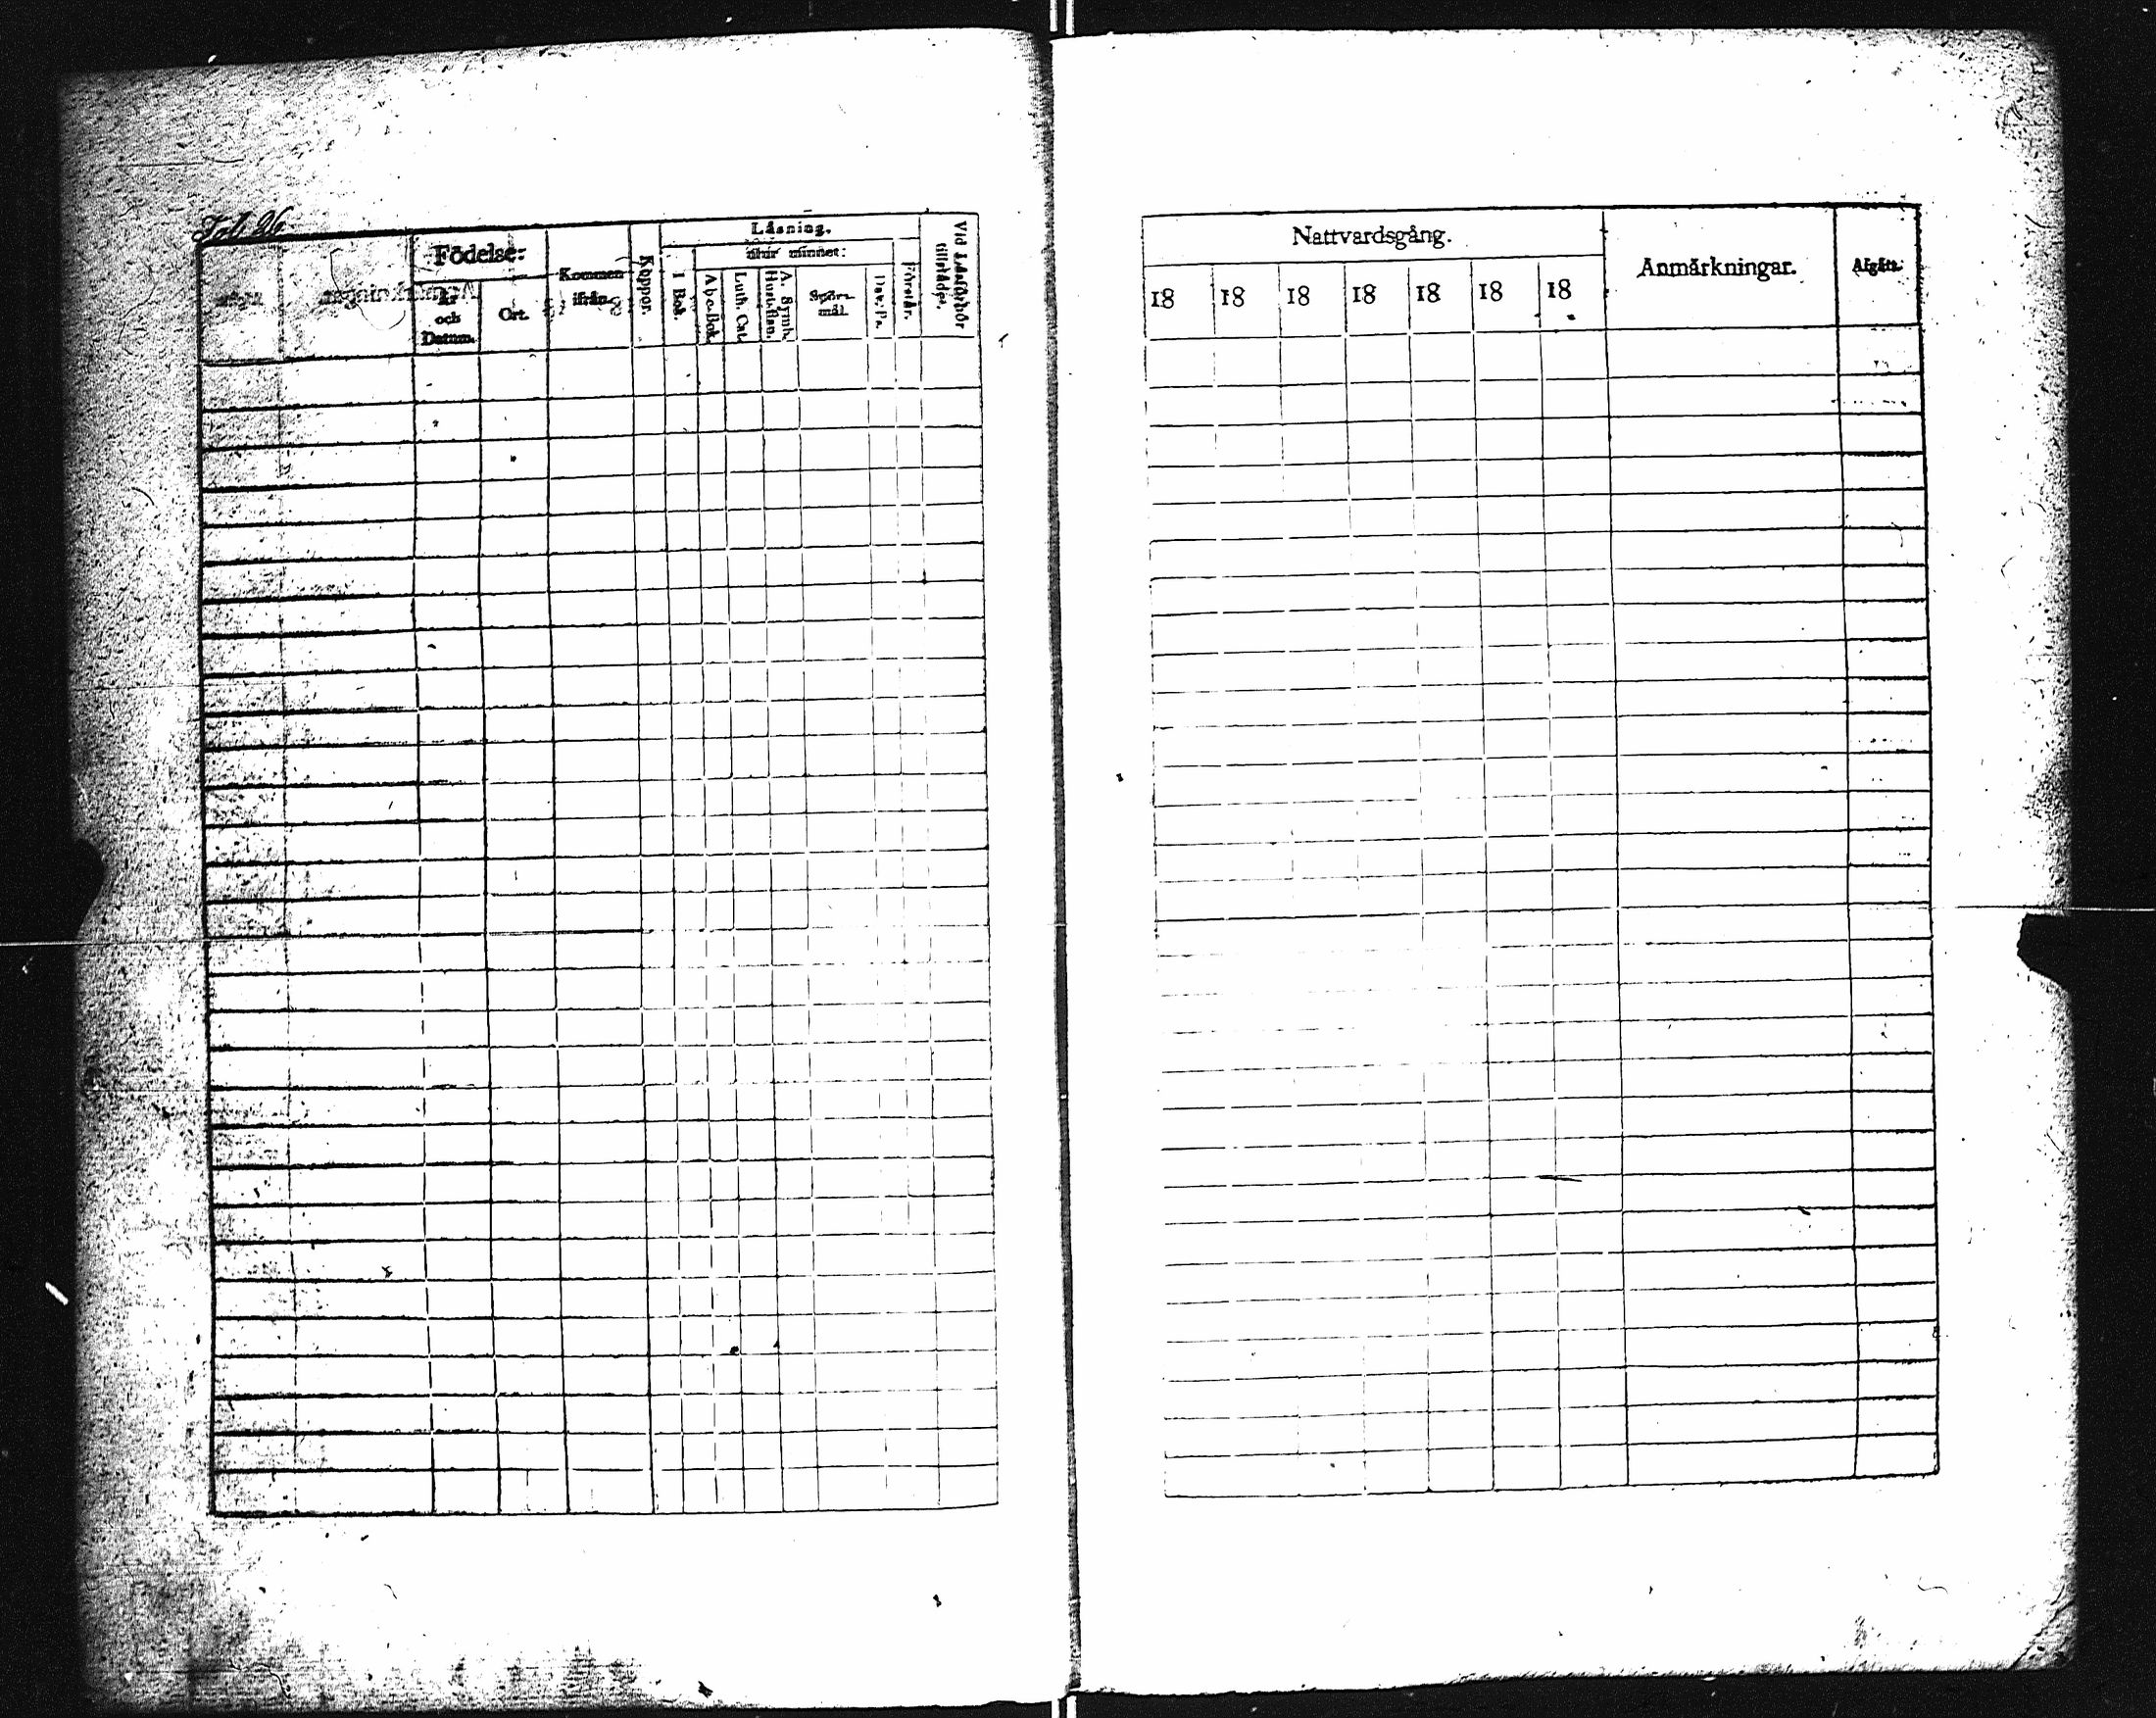 Fol. 26
Födelse:
År
och
Datum.
Ort.
Kommen
ifrån.
Koppor.
Läsning.
I Bok.
utur minnet:
A b c-Bok.
Luth. Cat.
A. Symb.
Hustaflan.
Spörs-
mål.
Dav. Ps.
Förstår.
Vid Läsförhör
tillstädes.
Nattvardsgång.
18 18 18 18 18 18 18
Anmärkningar.
Afgått.